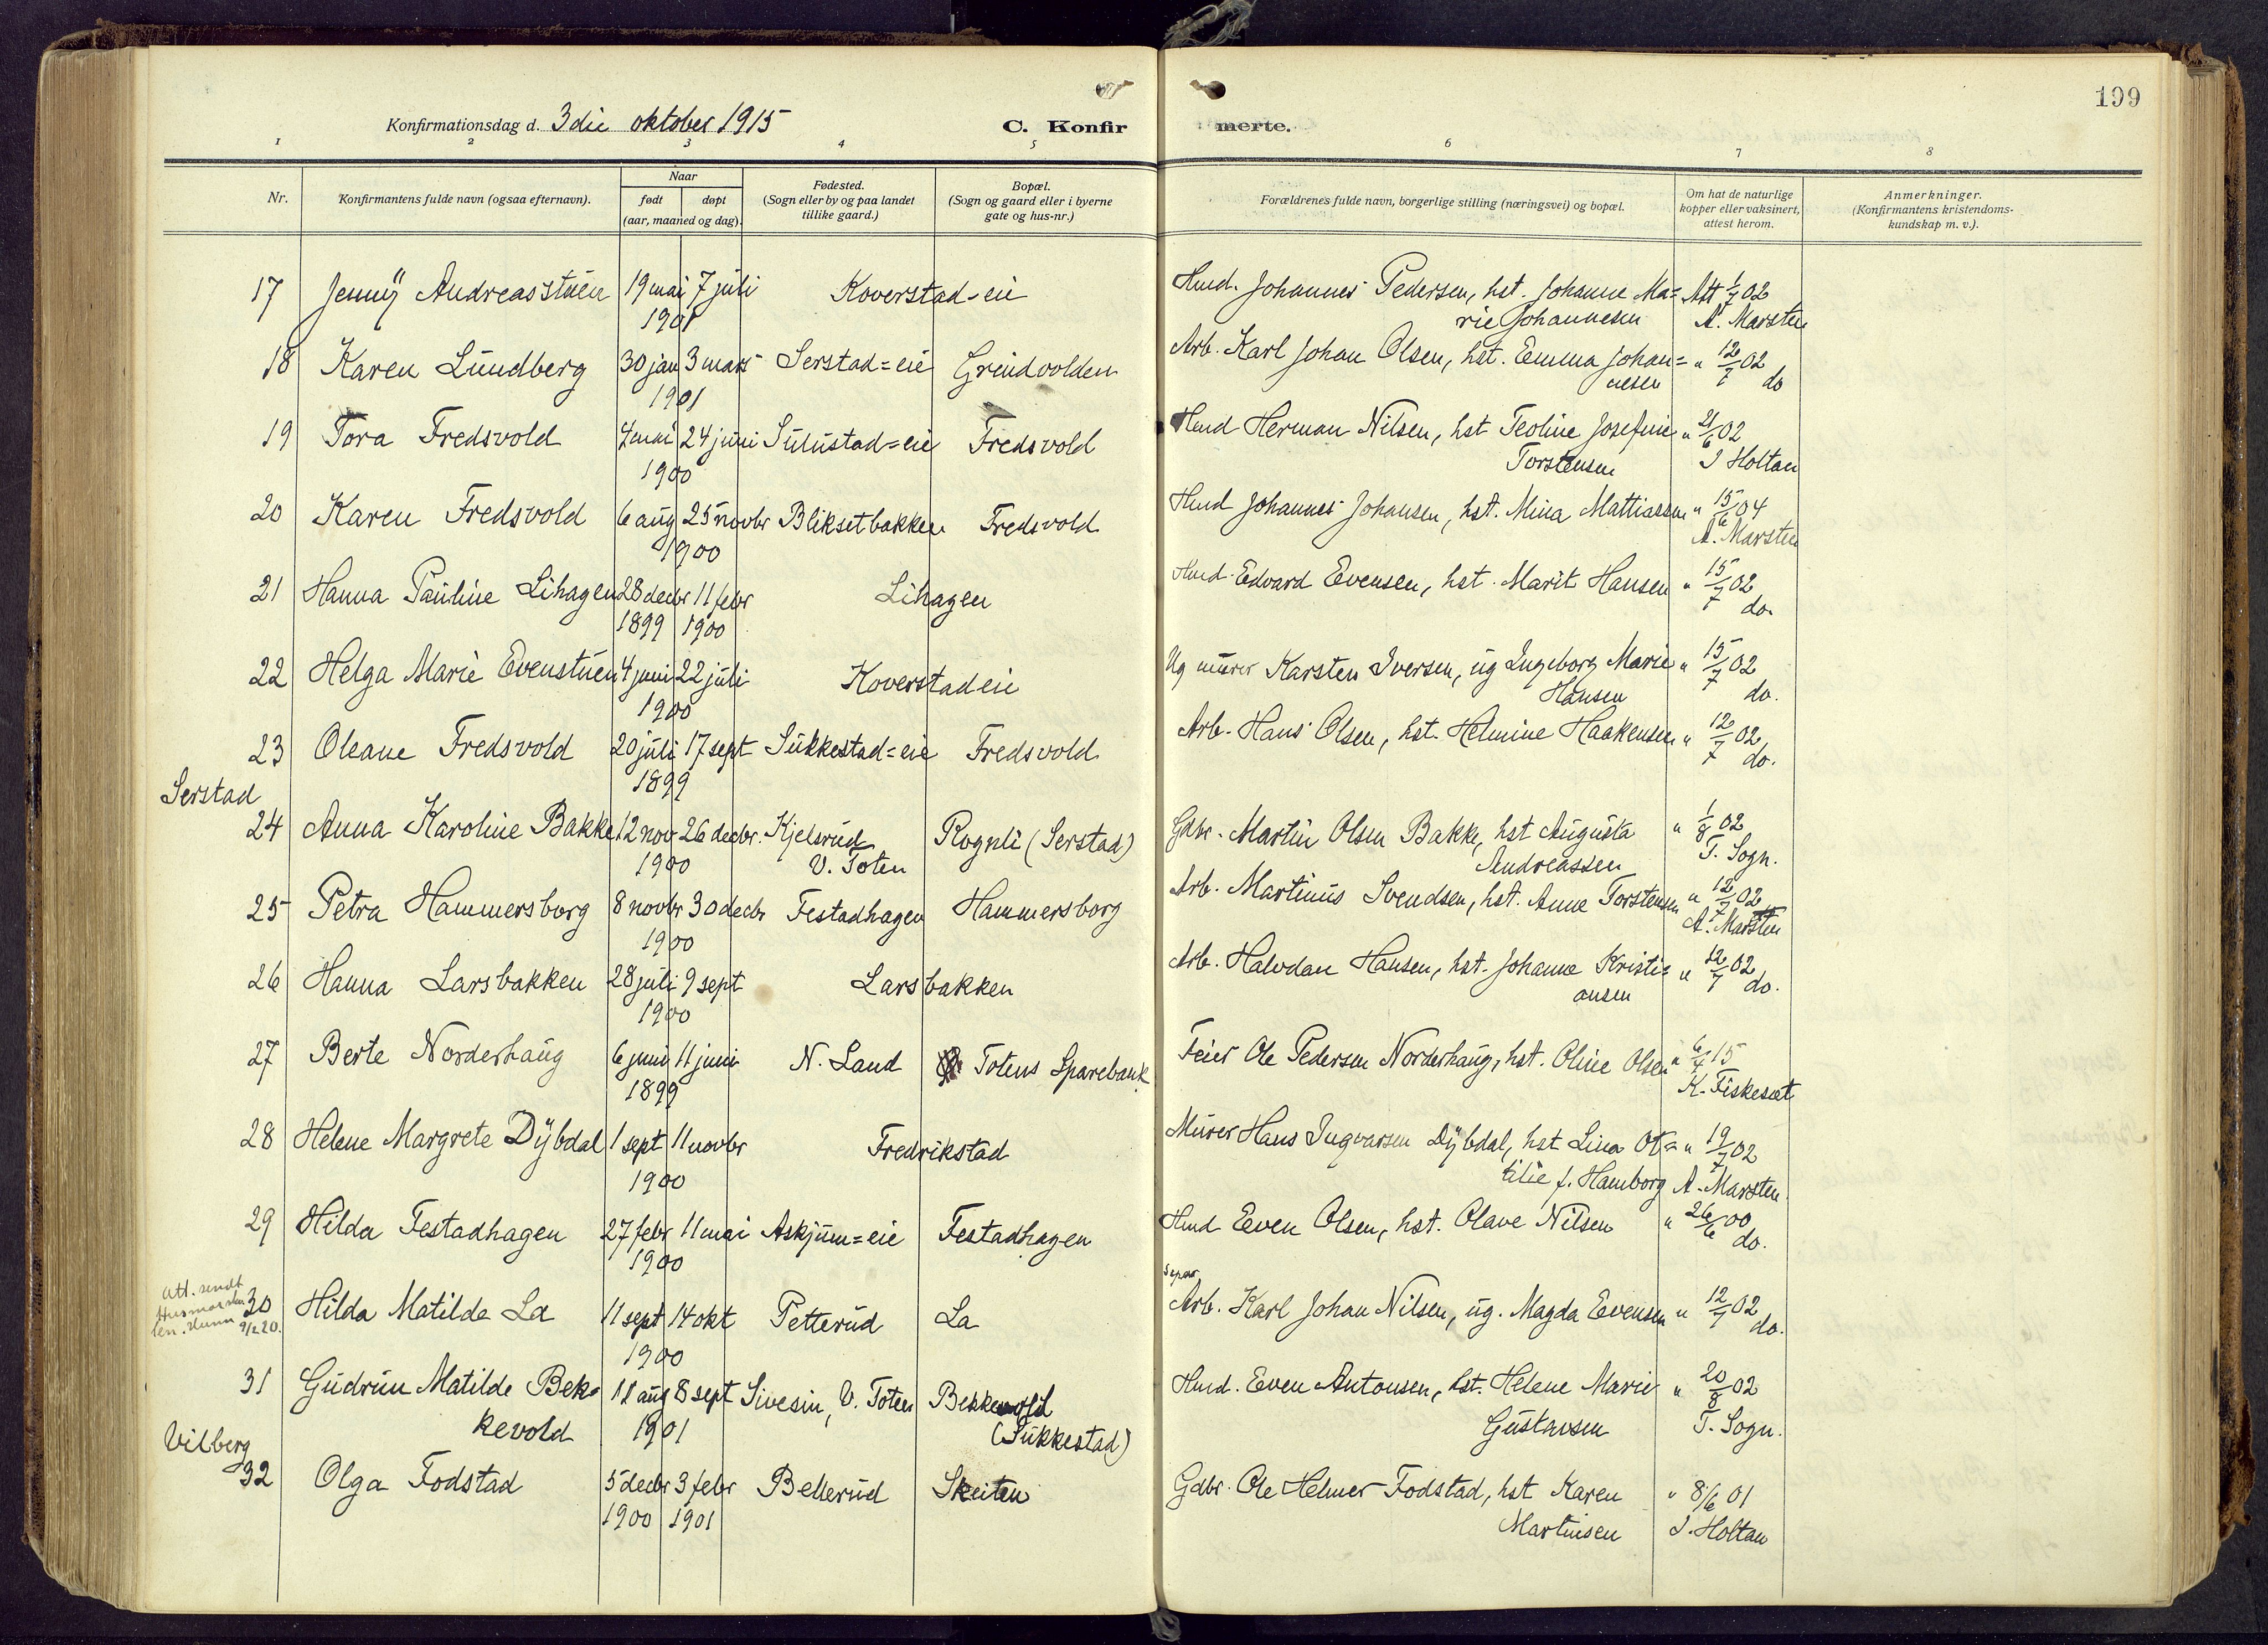 199
Konfirmationsdag d. 3die oktober 1915
C. Konfirmerte.
1 2 3 4 5 6 7 8
Nr.
Konfirmantens fulde navn (ogsaa efternavn).
Naar
født døpt
(aar, maaned og dag).
Fødested.
(Sogn eller by og paa landet
tillike gaard.)
Bopæl.
(Sogn og gaard eller i byerne
gate og hus-nr.)
Forældrenes fulde navn, borgerlige stilling (næringsvei) og bopæl.
Om hat de naturlige
kopper eller vaksinert,
attest herom.
Anmerkninger.
(Konfirmantens kristendoms-
kundskap m. v.).
17 Jenny Andreasstuen 19 mai 7 juli Koverstad-eie Hmd. Johannes Pedersen, hst. Johanne Ma= Att 1/7 02
1901 rie Johannesen A. Marsten
18 Karen Lundberg 30 jan 3 mars Serstad=eie Grindvolden Arb. Karl Johan Olsen, hst. Emma Johan= " 12/7 02
1901 nesen do
19 Tora Fredsvold 4 mai 24 juni Sulustad=eie Fredsvold Hmd Herman Nilsen, hst Teoline Josefine " 21/6 02
1900 Torstensen I Holtan
20 Karen Fredsvold 6 aug 25 novbr Bliksetbakken Fredsvold Hmd Johannes Johansen, hst. Mina Mattiassen " 15/6 04
1900 A. Marsten
21 Hanna Pauline Lihagen 28 decbr 11 febr Lihagen Hmd. Edvard Evensen, hst. Marit Hansen " 15/7 02
1899 1900 do.
22 Helga Marie Evenstuen 4 juni 22 juli Koverstadeie Ug murer Karsten Iversen, ug Ingeborg Marie " 15/7 02
1900 Hansen do.
23 Oleane Fredsvold 20 juli 17 sept Sukkestad=eie Fredsvold Arb. Hans Olsen, hst. Helmine Haakensen " 12/7 02
1899 do.
Serstad
24 Anna Karoline Bakke 12 nov 26 decbr. Kjelsrud Rognli (Serstad) Gdbr. Martin Olsen Bakke, hst Augusta " 1/8 02
1900 V. Toten Andreassen T. Sogn.
25 Petra Hammersborg 8 novbr 30 decbr Festadhagen Hammersborg Arb. Martinus Svendsen, hst. Anne Torstensen " 12/7 02
1900 A. Marsten
26 Hanna Larsbakken 28 juli 9 sept Larsbakken Arb. Halvdan Hansen, hst. Johanne Kristi= " 12/7 02
1900 ansen do.
27 Berte Norderhaug 6 juni 11 juni N. Land Totens Sparebank Feier Ole Pedersen Norderhaug, hst. Oline Olsen " 6/4 15
1899 K. Fiskeset
28 Helene Margrete Dybdal 1 sept 11 novbr Fredrikstad Murer Hans Ingvarsen Dybdal, hst Lina Ot= " 19/7 02
1900 tilie f. Hamborg A. Marsten
29 Hilda Festadhagen 27 febr 11 mai Askjum=eie Festadhagen Hmd Even Olsen, hst. Olave Nilsen " 26/6 00
1900 do.
att. sendt
len. Hunn 9/2 20.
separ.
30 Hilda Matilde La 11 sept 14 okt Petterud La Arb. Karl Johan Nilsen, ug. Magda Evensen " 12/7 02
1900 do.
31 Gudrun Matilde Bek= 11 aug 8 sept Sivesin, V. Toten Bekkevold Hmd. Even Antonsen, hst. Helene Marie " 20/8 02
kevold 1901 (Sukkestad) Gustavsen T. Sogn.
Vilberg
32 Olga Fodstad 5 decbr 3 febr Bellerud Skeiten Gdbr. Ole Helmer Fodstad, hst Karen " 8/6 01
1900 1901 Martinsen I. Holtan